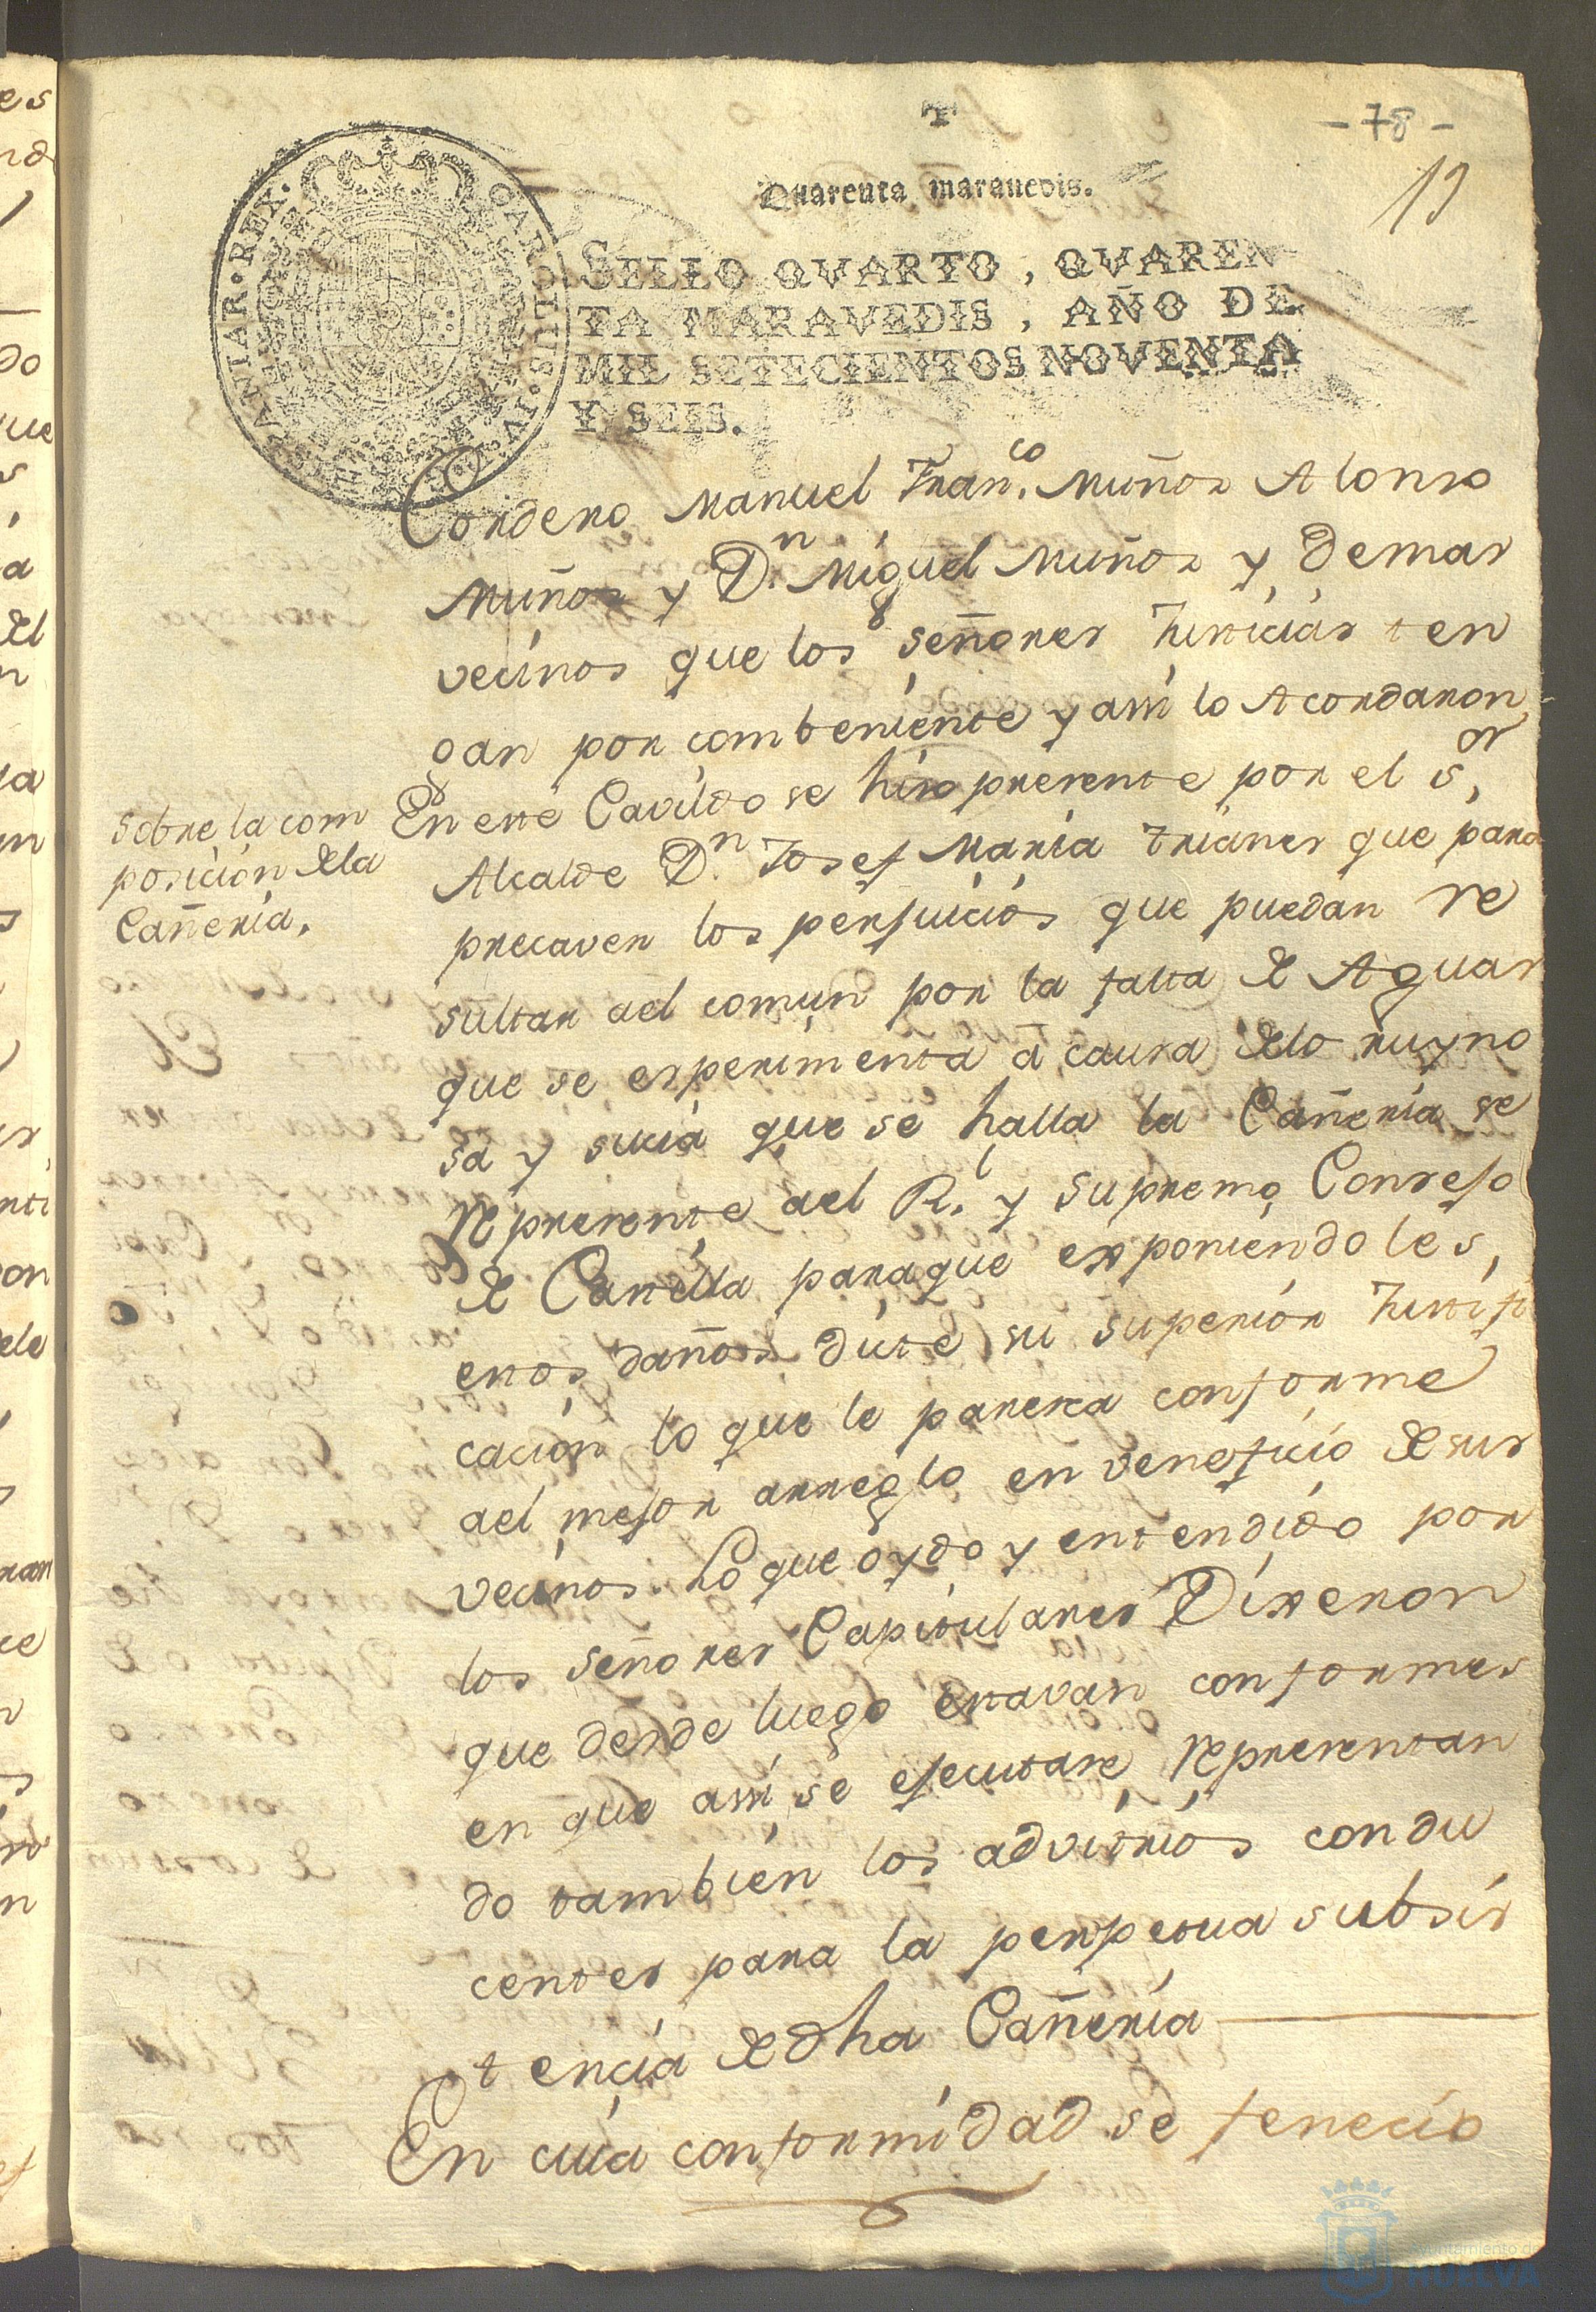 - 78 -
19
Quarenta maravedis.
SELLO QVARTO, QVAREN
TA MARAVEDIS, AÑO DE
MIL SETECIENTOS NOVENTA
Y SEIS.
Cordero Manuel Fran.co Muñoz Alonso
Muñoz y D.n Miguel Muñoz y demas
vecinos que los señores Justicias ten
gan por combeniente y assi lo Acordaron
Sobre la com
posicion de la
Cañeria.
En este Cavildo se hizo presente por el s.or
Alcalde D.n Josef Maria Trianes que para
precaver los perjuicios que puedan re
sultar ael comun por la falta de Aguas
que se esperimenta â causa de lo ruyno
sa y sucia que se halla la Cañeria se
represente ael R.l y Supremo Consejo
de Castilla paraque exponiendoles,
estos daños dicte su superior Justifi
cacion lo que le paresca conforme
ael mejor arreglo en veneficio de sus
vecinos. Lo que oydo y entendido por
los señores Capitulares Dixeron
que desde luego estavan conformes
en que assi se ejecutase, representan
do tambien los advitrios condu
centes para la perpetua subsis
tencia de dha Cañeria
En cuia conformidad se fenecio
Ayuntamiento de
HUELVA